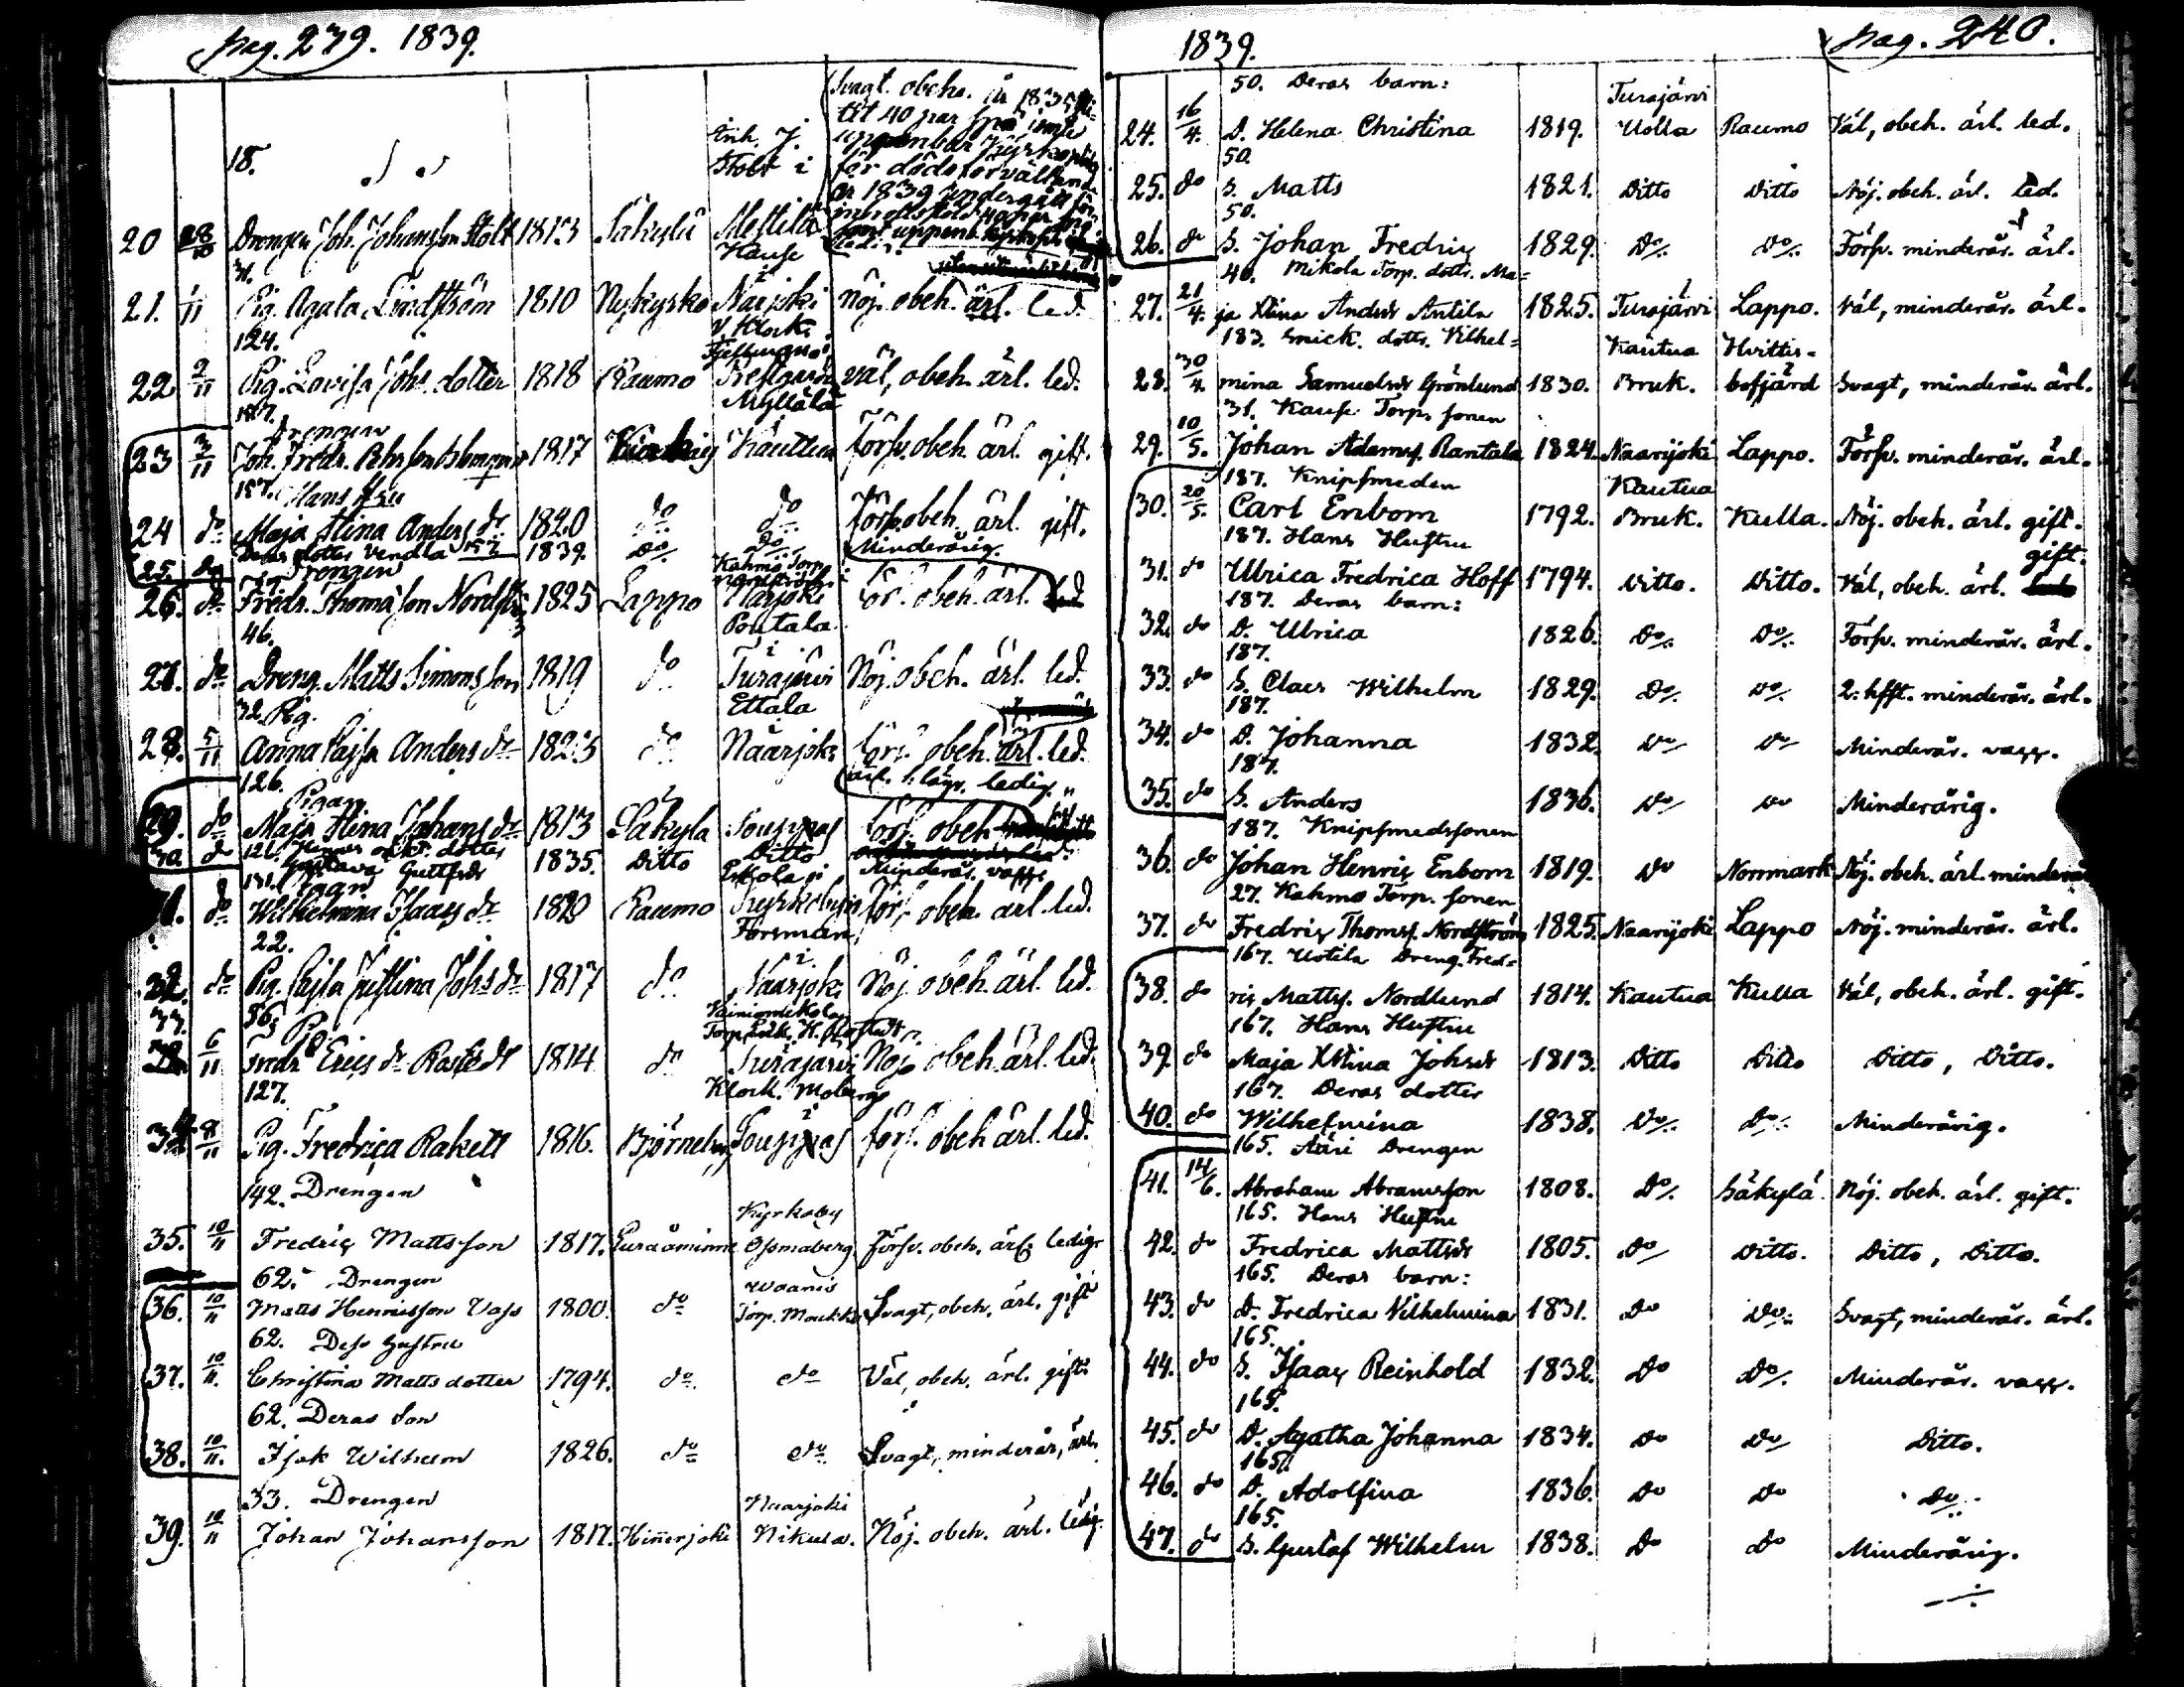 pag. 239. 1839.
Svagt. obeh. år 1835 
tit 40 par spö
Enk. J. uppenbar
18. Stolt i för dödsförvållande
år 1839 undergått
20 28/10 Drengen Joh. Johansson Stolt 1813 Säkylä Mestilä
31. Kaufe
21. 1/11 Pig. Agata Lindström 1810 Nykyrko Naarjoki Nöj. obeh. ärl. led.
124. Klock.
22 2/11 Pig. Lovisa Johs. dotter 1818 Raumo Prestgården väl, obeh. ärl. led.
187. Drengen Myllälä
23 3/11 Joh. Fredr. 1817 Kauttua försv. obeh. ärl. gift.
187. Hans Hu
24 do Maja Stina Anders dr 1820 do do försv. obeh. ärl. gift.
25. do dotter Vendla 1839. do do Minderårig.
27. Drengen Kahmo Torp.
26. do Fredr. Thomasson Nordström 1825 Lappo Narjoki för. obeh. ärl.
46. Pontala
27. do Dreng. Matts Simonsson 1819 do i Turajärvi Nöj. obeh. ärl. led.
32. Pig. Ettala
28. 5/11 Anna Cajsa Anders dr 1823 do i Naarjoki förs. obeh. ärl. led.
126. Pigan ledig.
29. do Maja Stina Johans dr 1813 Säkylä förs. obeh
30. do 126. Hennes dotter Gustava 1835. Ditto Ditto Minderår. vagg.
131. Pigan Eskola i
31. do Wilhelmina Isaacs dr 1820 Raumo Kyrkobyn för. obeh. ärl. led.
22. Forsman
32. do Pig. Cajsa Justina Johs dr 1817 do i Naarjoki Nöj. obeh. ärl. led.
33. 56. Pig. Torp.
6/11 Erics dr 1814 do Turajärvi Nöj. obeh. ärl. led.
127. Klock. Moberg
34 8/11 Pig. Fredrica Rakett 1816. Björneborg förs. obeh. ärl. led.
142. Drengen Kyrkoby
35. 10/11 Fredric Mattsson 1817. Euraåminne försv. obeh. ärl. ledig.
62. Drengen
36. 10/11 Matts Henricsson 1800. do Torp. Svagt, obeh. ärl. gift
62. Dess hustru
37. 10/11. Christina Matts dotter 1794. do do Väl, obeh. ärl. gift.
62. Deras Son
38. 10/11. Isak Wilhelm 1826. do do Svagt, minderår, ärl.
33. Drengen Naarjoki
39. 10/11 Johan Johansson 1817. Hinnerjoki Nikula. Nöj. obeh. ärl. ledig.
1839. pag. 240.
50. Deras barn: Turajärvi
24. 16/4. D. Helena Christina 1819. Uolla Raumo Väl, obeh. ärl. led.
50.
25. do S. Matts 1821. Ditto Ditto Nöj. obeh. ärl. led.
50.
26. do S. Johan Fredric 1829. Do/. Do/. Försv. minderår. ärl.
40. Mikola Torp. dottr. Ma=
27. 21/4. ja Stina Andrsdr Antila 1825. Turajärvi Lappo. Väl, minderår. ärl.
183. Smick. dottr. Vilhel= Kautua Hvittis-
28. 30/4. mina Samuelsdr Grönlund 1830. Bruk. bofjärd Svagt, minderår. ärl.
31. Kaufe Torp. sonen
29. 10/5. Johan Adamss. Rantala 1824. Naarijoki Lappo. Försv. minderår. ärl.
187. Knipsmeden Kautua
30. 20/5. Carl Enbom 1792. Bruk. Kulla. Nöj. obeh. ärl. gift.
187. Hans Hustru gift.
31. do Ulrica Fredrica Hoff 1794. Ditto. Ditto. Väl, obeh. ärl.
187. Deras barn:
32. do D. Ulrica 1826. Do/. Do/. Försv. minderår. ärl.
187.
33. do S. Claes Wilhelm 1829. Do/. Do/. 2. hfft. minderår. ärl.
187.
34. do D. Johanna 1832. Do/ Do/ Minderår. vagg.
187.
35. do S. Anders 1836. Do/ Do Minderårig.
187. Knipsmedssonen
36. do Johan Henric Enbom 1819. Do Norrmark Nöj. obeh. ärl. minderår
27. Kahmo Torp. sonen
37. do Fredric Thomss. Nordström 1825. Naarijoki Lappo Nöj. minderår. ärl.
167. Uotila Dreng. Fred=
38. do ric Mattss. Nordlund 1814. Kautua Kulla Väl, obeh. ärl. gift.
167. Hans Hustru
39. do Maja Stina Johsdr 1813. Ditto Ditto Ditto, Ditto.
167. Deras dotter
40. do Wilhelmina 1838. Do/. Do/. Minderårig.
165. Aäri Drengen
41. 14/6. Abraham Abramsson 1808. Do/. Säkylä. Nöj. obeh. ärl. gift.
165. Hans Hustru
42. do Fredrica Mattsdr 1805. Do/ Ditto. Ditto, Ditto.
165. Deras barn:
43. do D. Fredrica Vilhelmina 1831. Do Do/. Svagt, minderår. ärl.
165.
44. do S. Isaac Reinhold 1832. Do Do/. Minderår. vagg.
165.
45. do D. Agatha Johanna 1834. Do Do/ Ditto.
165.
46. do D. Adolfina 1836. Do Do Do/.
165.
47. do S. Gustaf Wilhelm 1838. Do Do Minderårig.